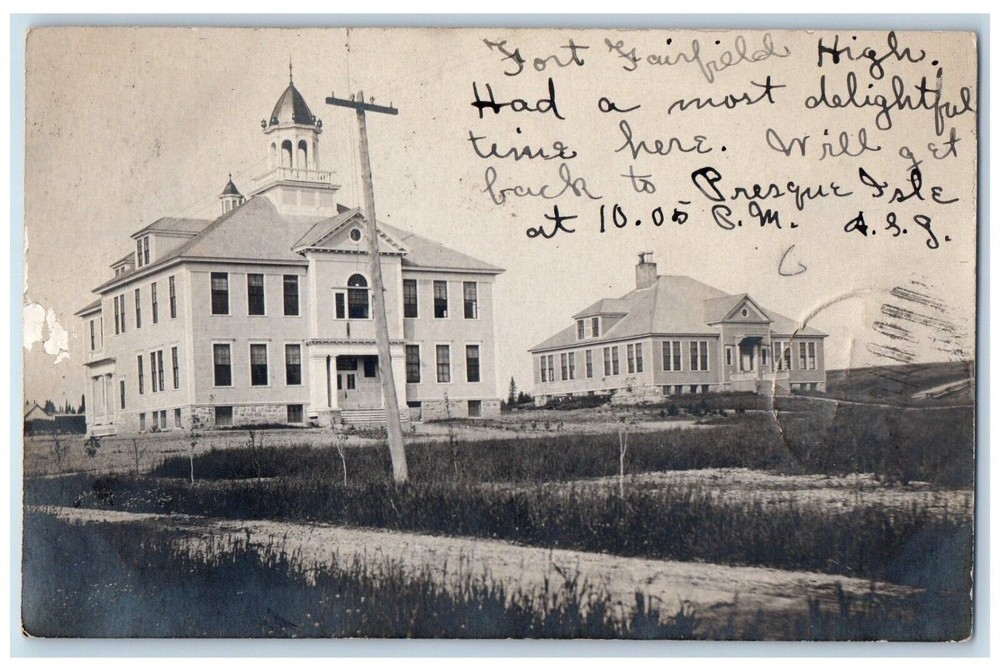 Fort Fairfield High.
Had a most delightful
time here. Will get
back to Presque Isle
at 10.05 P.M. A.S.J.